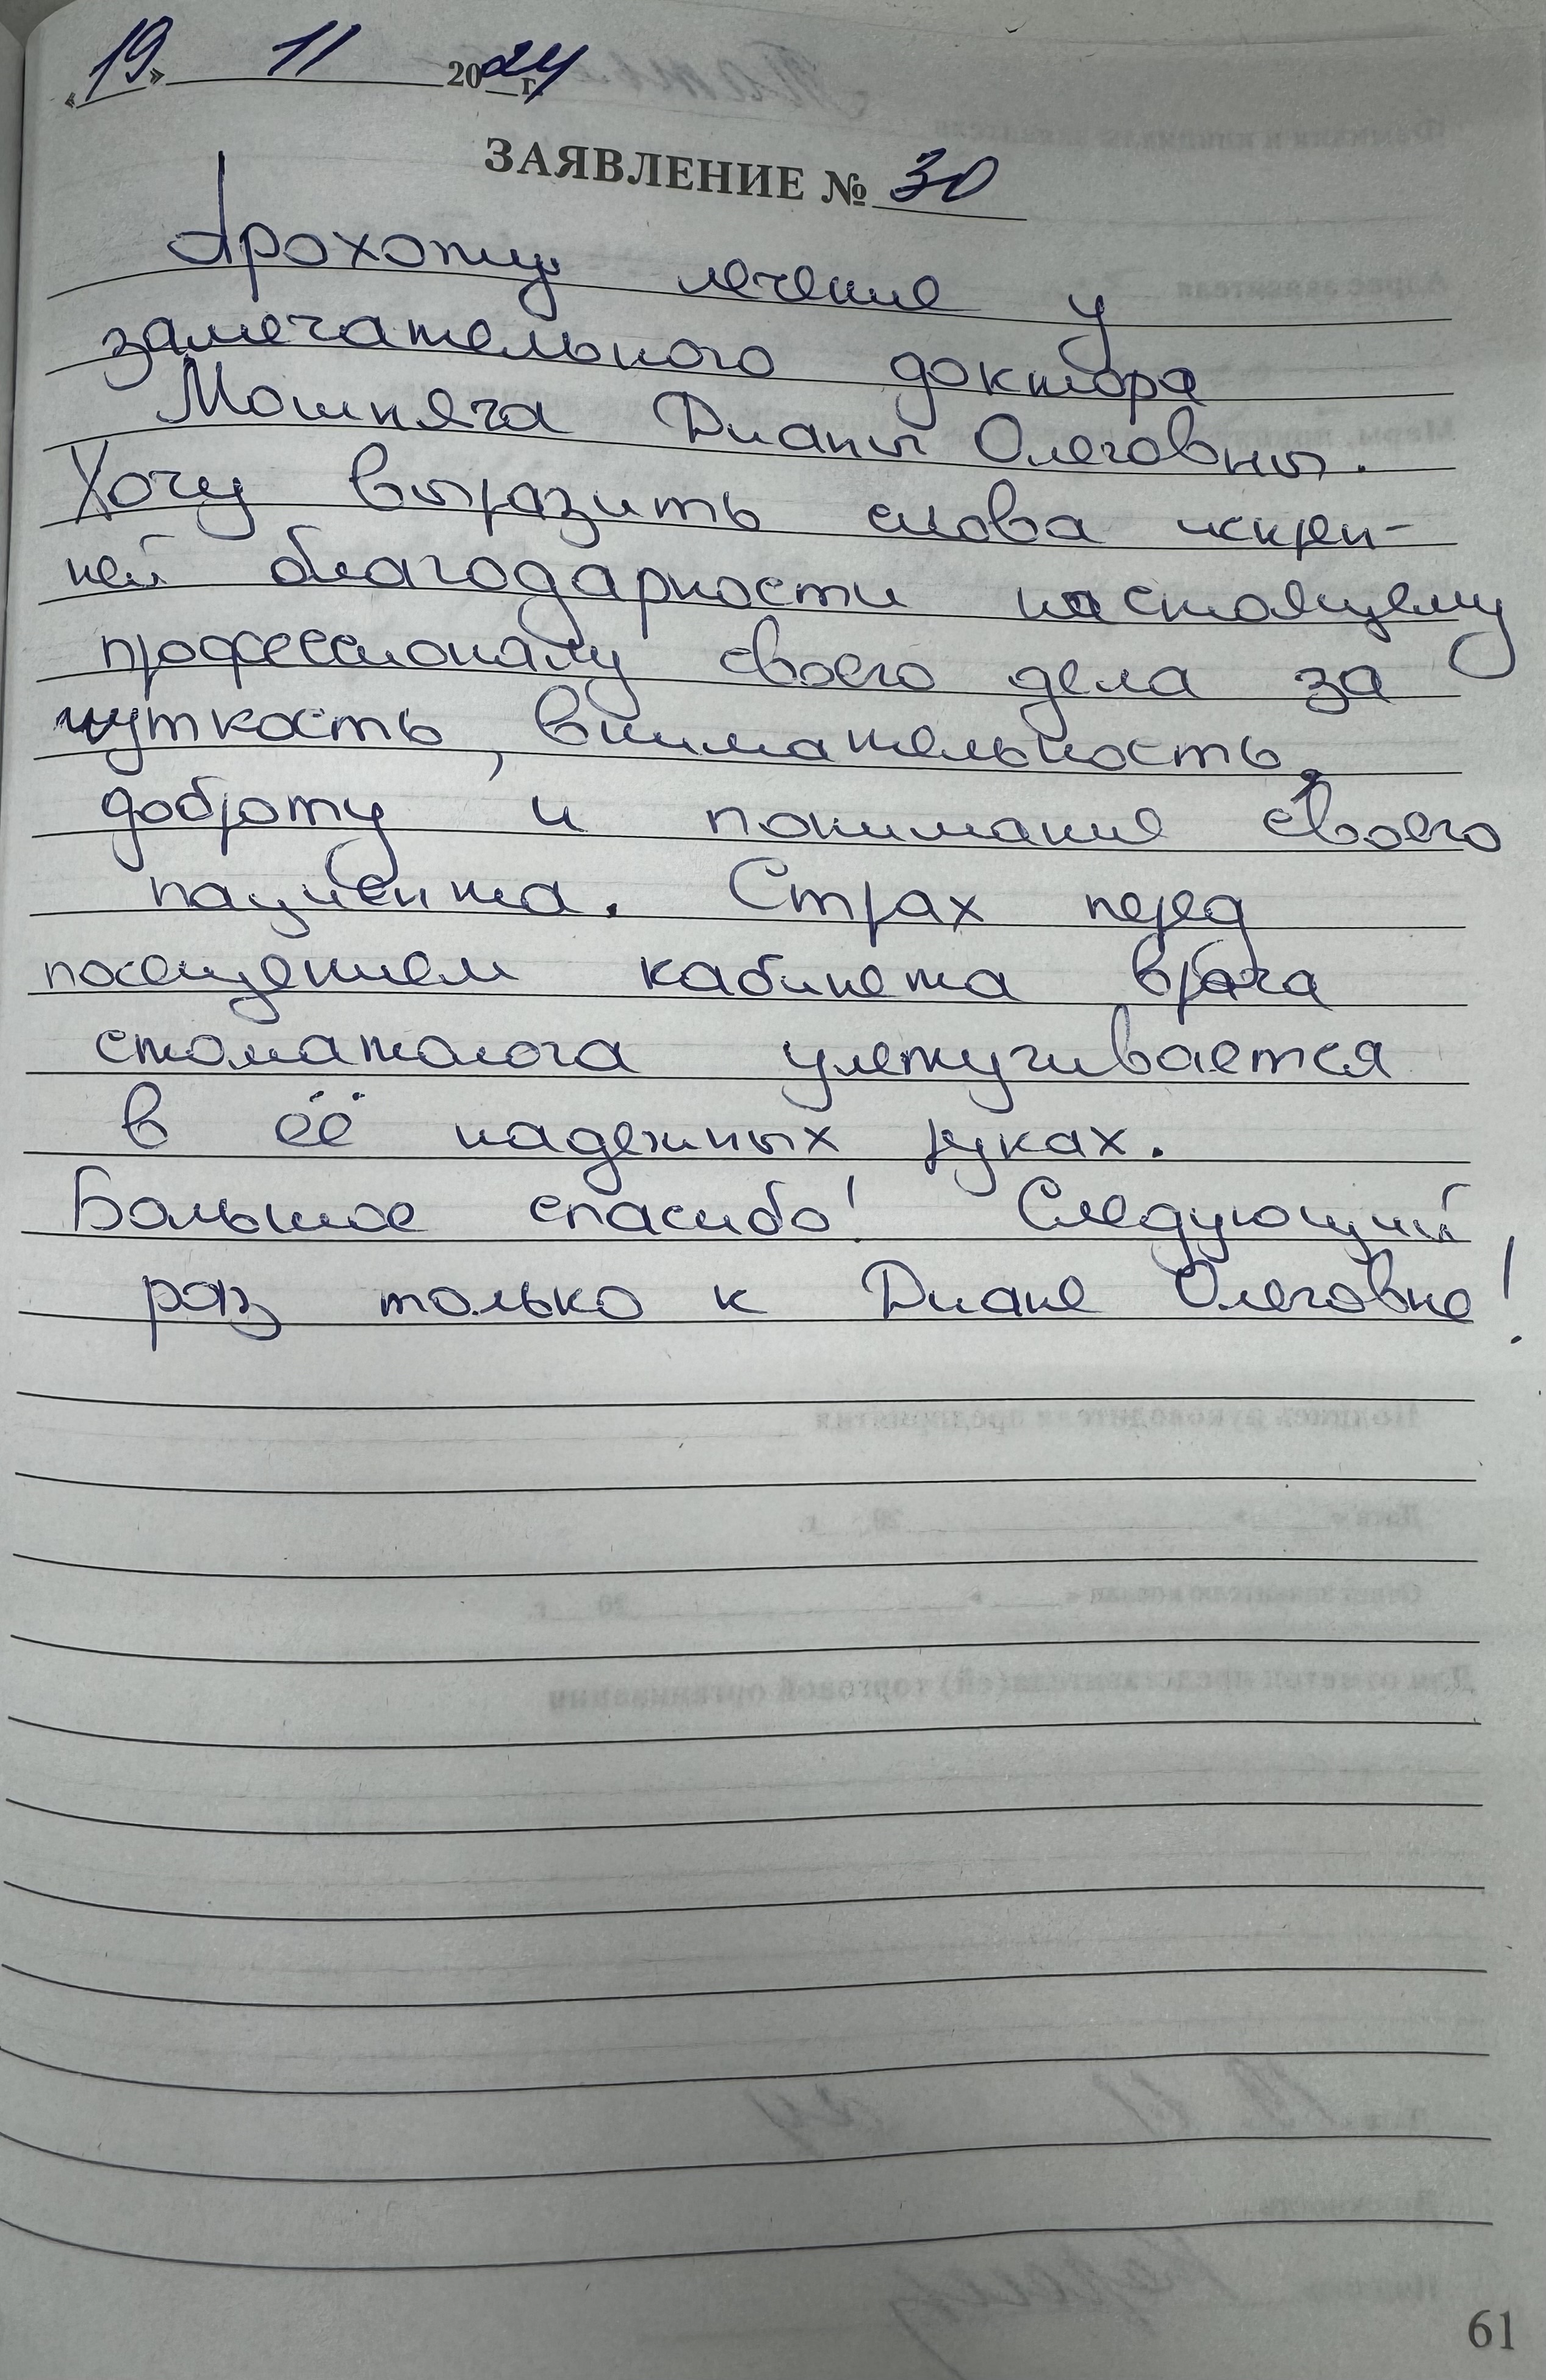 «19» 11 2024 г.
ЗАЯВЛЕНИЕ № 30
Прохожу лечение у
замечательного доктора
Мошняга Дианы Олеговны.
Хочу выразить слова искрен-
ней благодарности настоящему
профессионалу своего дела за
чуткость, внимательность,
доброту и понимание своего
пациента. Страх перед
посещением кабинета врача
стоматолога улетучивается
в её надежных руках.
Большое спасибо! Следующий
раз только к Диане Олеговне!
61